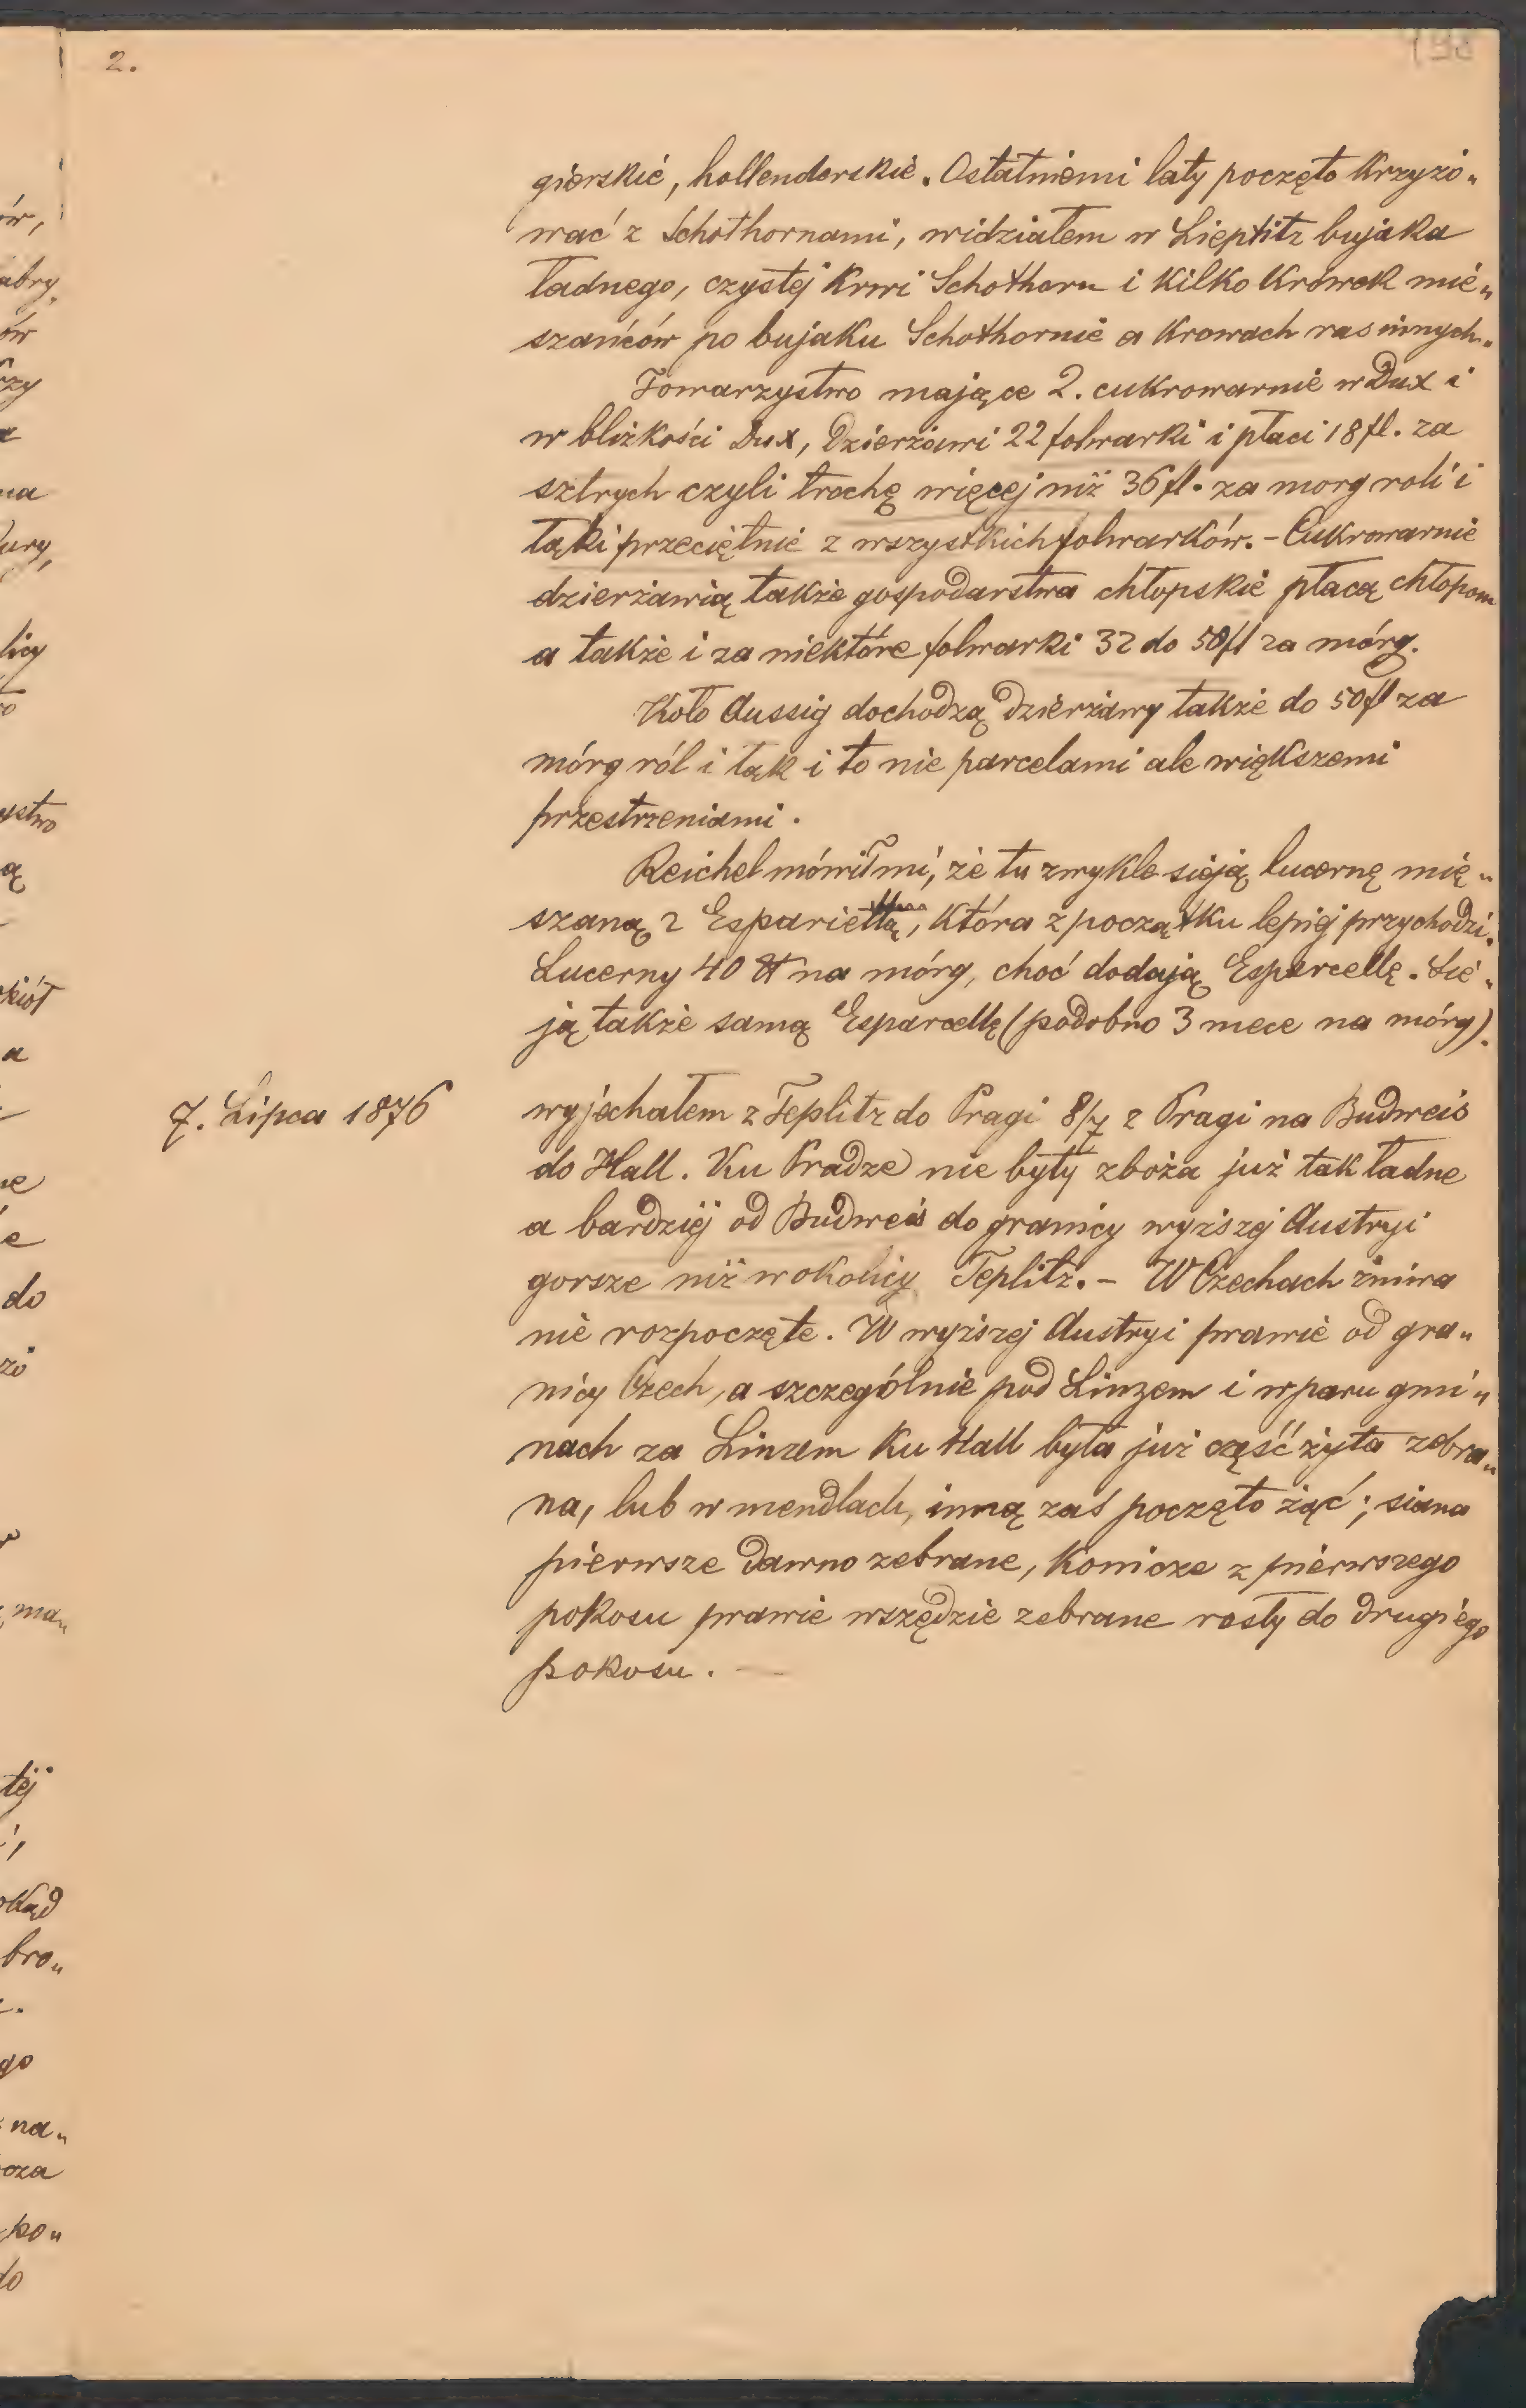 2.
gierskié, hollenderskié. Ostatniemi laty poczęto Krzyżo„
wać z Schothornami, widziałem w Lieptitz bujaka
ładnego, czystéj Krwi Schothorn i Kilko Krówek mié„
szańców po bujaku Schothornié a Krowach ras innych.
Towarzystwo mające 2. cukrowarnié w Dux i
w bliżkości Dux, dzierżawi 22 folwarki i płaci 18 fl. za
sztrych czyli trochę więcej niż 36 fl. za morg roli i
łąki przeciętnié z wszystkich folwarków. – Cukrowarnié
dzierżawią także gospodarstwa chłopskié płacą chłopom
a także i za niektóre folwarki 32 do 50 fl za mórg.
Koło Aussig dochodzą dzierżawy także do 50 fl za
mórg ról i łąk i to nie parcelami ale większemi
przestrzeniami.
Reichel mówił mi, że tu zwykle sieją lucernę mię„
szaną z , która z początku lepiéj przychodzi.
Lucerny 40 ℔ na mórg, choć dodają Esparcellę. Sié„
ją także samą Esparcellę (podobno 3 mece na mórg).
7. Lipca 1876
wyjechałem z Teplitz do Pragi 8/7 z Pragi na Budweis
do Hall. Ku Pradze nie były zboża już tak ładne
a bardziéj od Budweis do granicy wyższéj Austryi
gorsze niż w okolicy Teplitz. – W Czechach żniwa
nié rozpoczęte. W wyższej Austryi prawié od gra„
nicy Czech, a szczególnié pod Linzem i w paru gmi„
nach za Linzem Ku Hall była już część żyta zebra„
na, lub w mendlach, inną zaś poczęto żąć; siana
pierwsze dawno zebrane, Konicze z piérwszego
pokosu prawie wszędzie zebrane rosły do drugiégo
pokosu. —